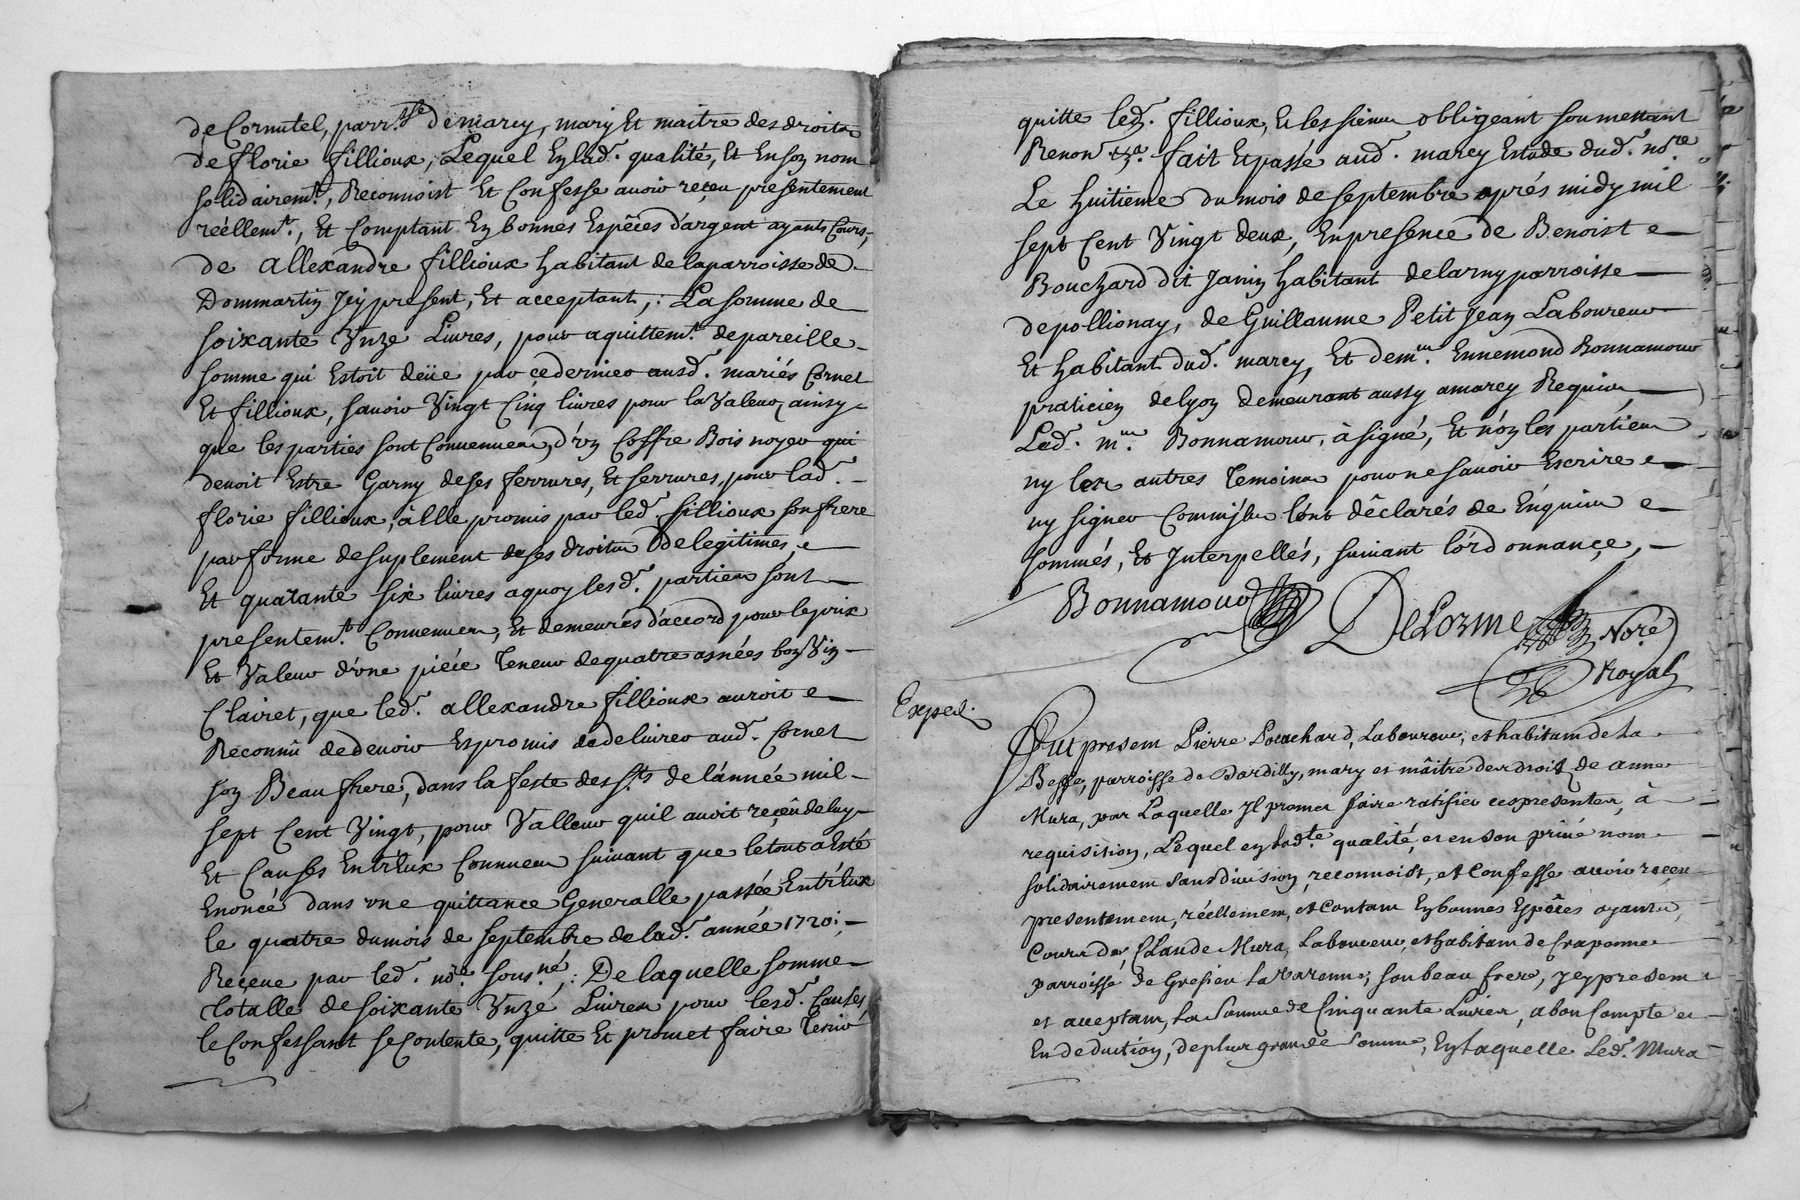 de Cornutel, parr.sse de marcy, mary Et maitre des droits
de florie fillioux, Lequel En lad. qualité, Et En son nom
solidairemt, Reconnoist Et Confesse avoir reçeu presentement
réellemt., Et Comptant En bonnes Espêces d'argent ayants Cours,
de allexandre fillioux habitant de la parroisse de
Dommartin Icy present, Et acceptant,: La somme de
soixante Unze Livres, pour aquittemt. de pareille
somme qui Estoit deüe par ce dernier ausd. mariés Cornet
Et fillioux, savoir Vingt Cinq livres pour la Valeur, ainsy
que les parties sont Convenues, d'un Coffre Bois noyer qui
devoit Estre Garny de ses ferrures, Et serrures, pour lad.
florie fillioux, à Elle promis par led. fillioux son frere
par forme de suplement de ses droits de legitimes,
Et quarante six livres a quoy lesd. parties sont
presentemt. Convenues, Et demeurés d'accord pour le prix
Et Valeur d'une piéce Teneur de quatre asnées bon Vin
Clairet, que led. allexandre fillioux auroit
Reconnû de devoir Et promis de delivrer aud. Cornet
son Beau frere, dans la feste des Sts de l'année mil
sept Cent Vingt, pour Valleur qu'il avoit reçeû de luy
Et Causes Entr'Eux Connues suivant que le tout a Esté
Enoncé dans une quittance Generalle passée Entr'Eux
le quatre du mois de septembre de lad. année 1720;
Reçeue par led. nore. sousné,: De laquelle somme
totalle de soixante Unze Livres pour lesd. Causes
le Confessant se Contente, quitte Et promet faire Tenir
quitte led. fillioux, Et les siens obligeant soumettant
Renon. &a. fait Et passé aud. marcy Estude dud. nore
Le huitieme du mois de septembre aprés midy mil
sept Cent Vingt deux, En presence de Benoist
Bouchard dit Janin habitant de larny parroisse
de pollionay, de Guillaume Petit Jean Laboureur
Et habitant dud. marcy, Et de me. Ennemond Bonnamour
praticien de lyon demeurant aussy a marcy Requis,
Led. me. Bonnamour, à signé, Et nón les parties
ny les autres Temoins pour ne savoir Escrire
ny signer Comm'ils l'ont dêclarés de Enquis
sommés, Et Interpellés, suivant l'ordonnançe,
Bonnamour DeLorme Nore
Royal
Exped.
Fut present Pierre Bouchard, Laboureur, et habitant de La
Besse, parroisse de Dardilly, mary et mâitre des droits de anne
Mura, par Laquelle Jl promet faire ratifier ces presentes, à
requisition, Lequel en lad.te qualité, et en son privé nom
solidairement sans division, reconnoist, et Confesse avoir reçeu
presentement, réellement, et Contant En bonnes Espêces ayants
Cours de, Claude Mura, Laboureur, et habitant de Craponne
parroisse de Gresieu La Varenne, son beau frere, Jcy present
et acceptant, La Somme de Cinquante Livres, a bon Compte et
En deduction, de plus grande Somme, En Laquelle Led. Mura